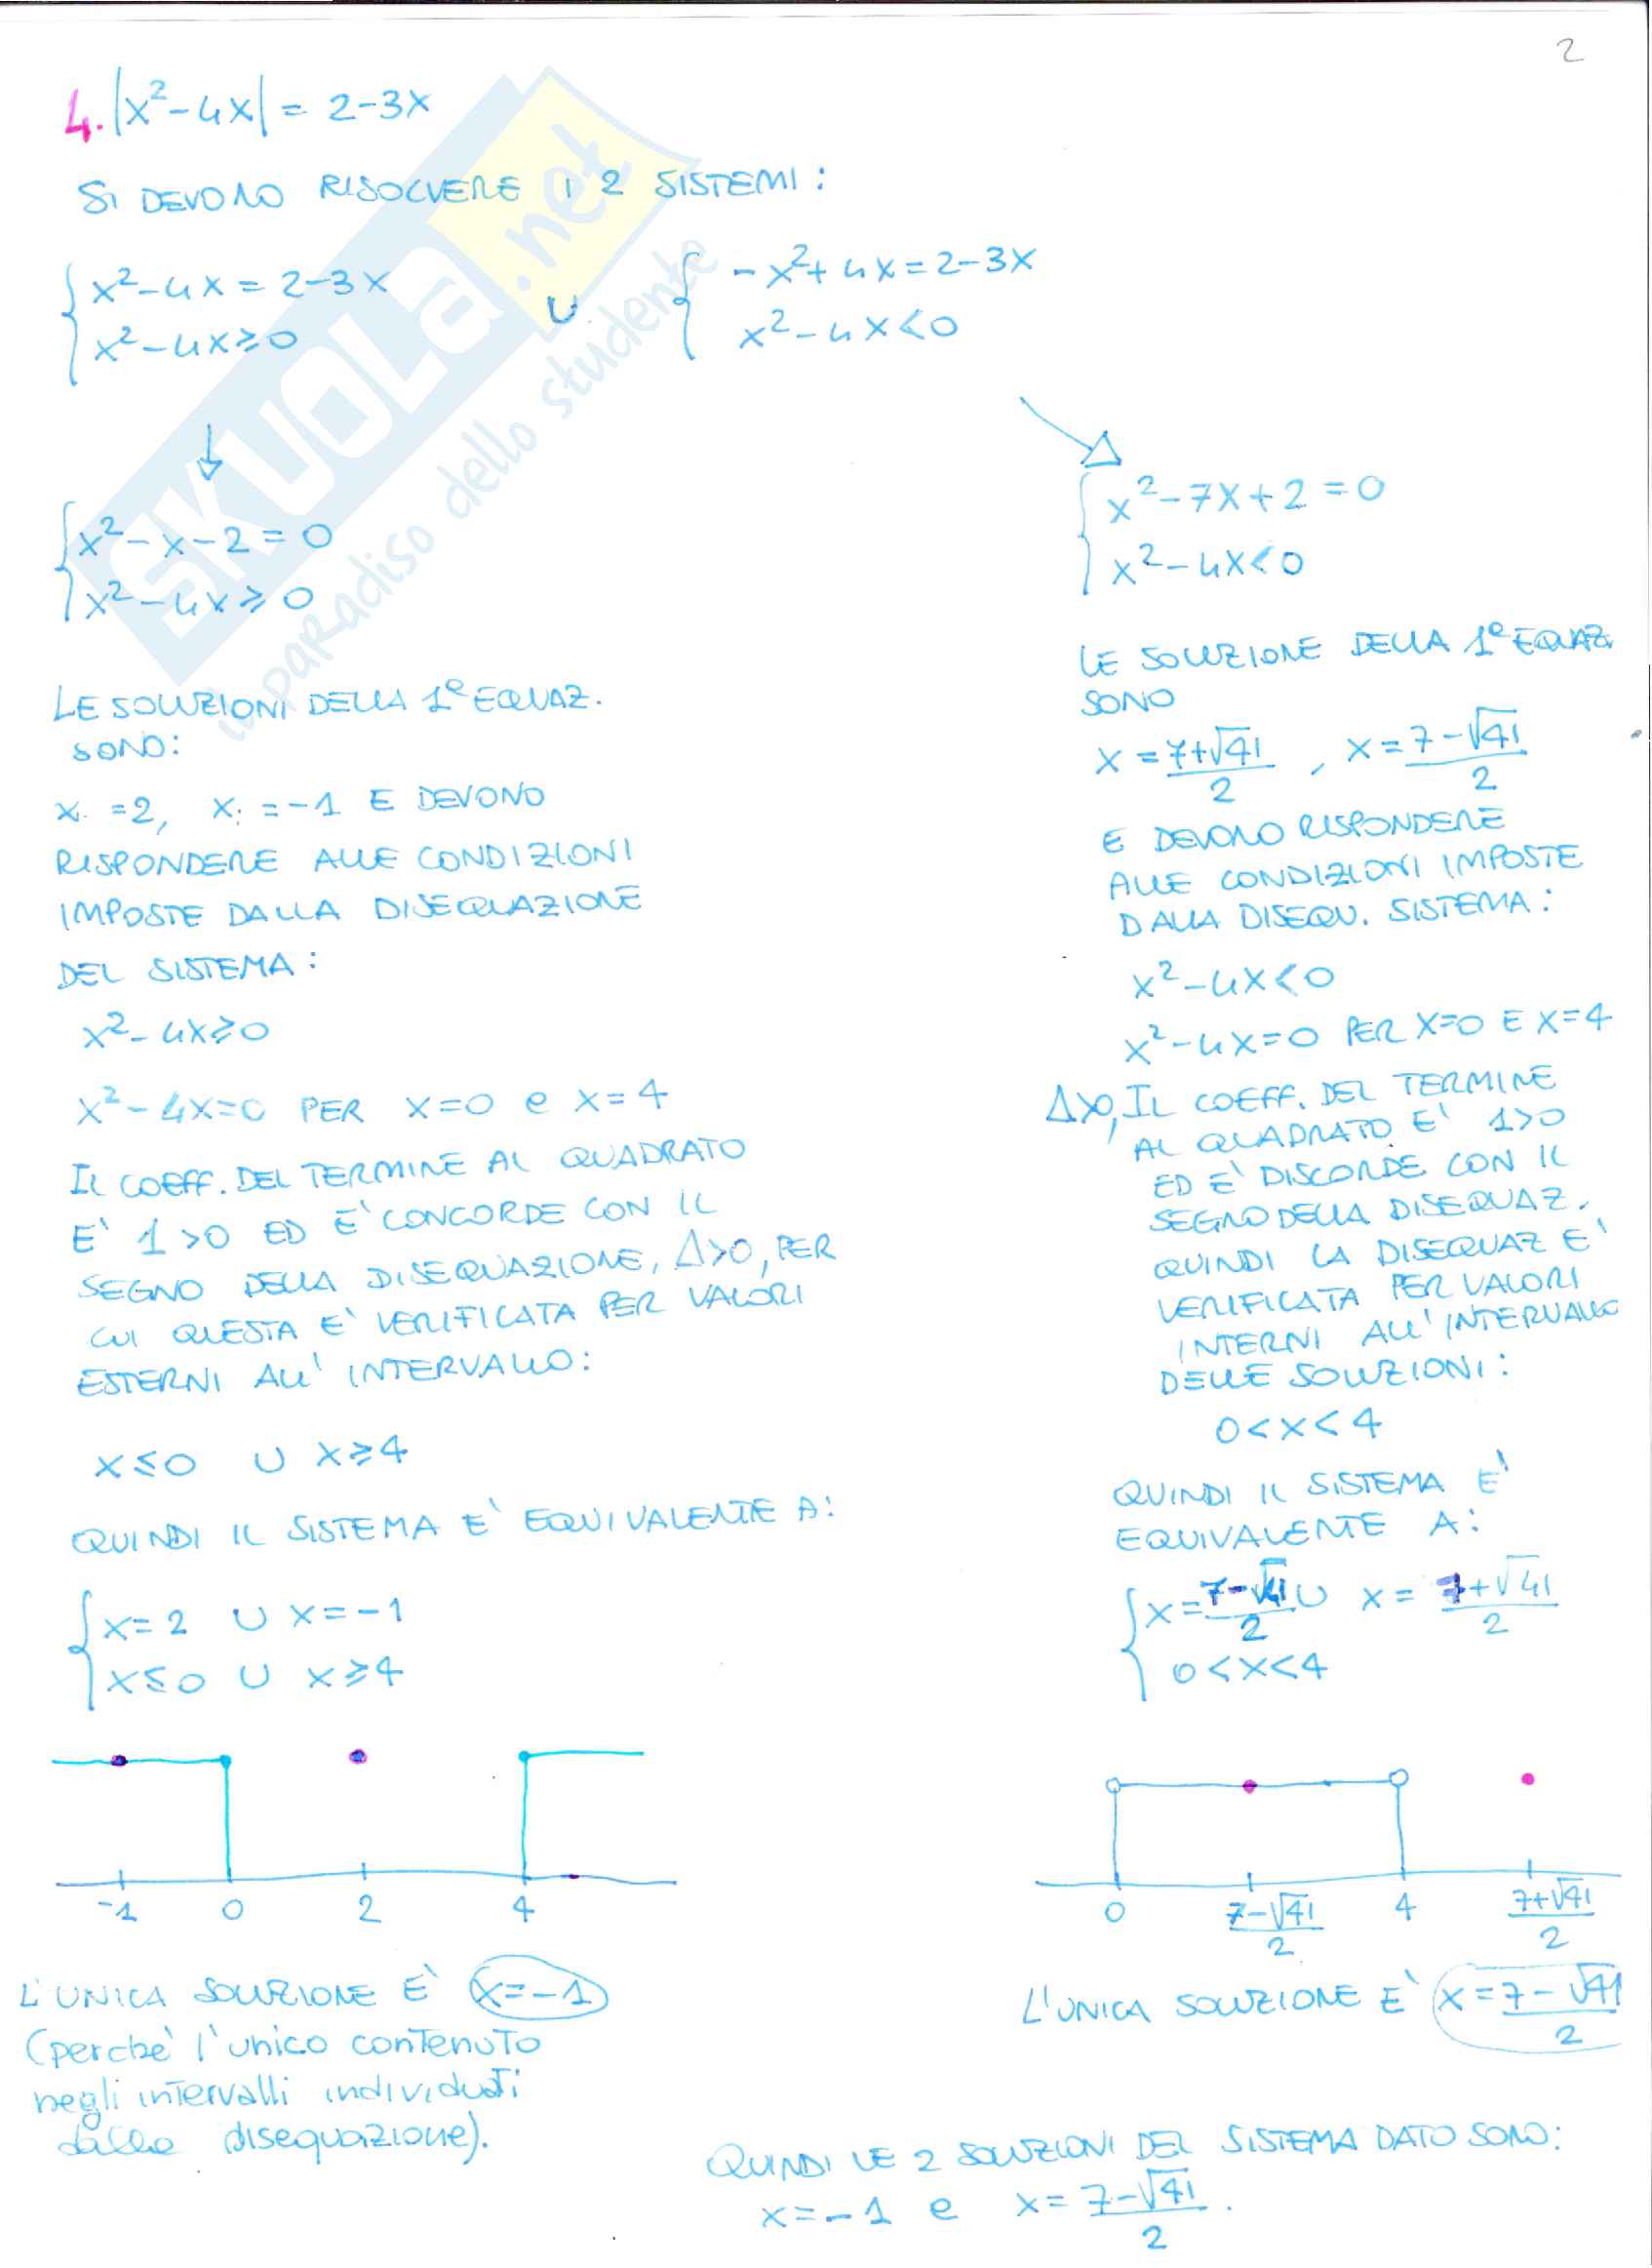 2
4. |x²-4x| = 2-3x
SI DEVONO RISOLVERE I 2 SISTEMI:
{ x²-4x = 2-3x
x²-4x ≥ 0
∪
{ -x²+4x = 2-3x
x²-4x < 0
↓
{ x²-x-2 = 0
x²-4x ≥ 0
LE SOLUZIONI DELLA 1ª EQUAZ.
SONO:
x. = 2, x. = -1 E DEVONO
RISPONDERE ALLE CONDIZIONI
IMPOSTE DALLA DISEQUAZIONE
DEL SISTEMA:
x²-4x ≥ 0
x²-4x=0 PER x=0 e x=4
IL COEFF. DEL TERMINE AL QUADRATO
E' 1>0 ED E' CONCORDE CON IL
SEGNO DELLA DISEQUAZIONE, Δ>0, PER
CUI QUESTA E' VERIFICATA PER VALORI
ESTERNI ALL'INTERVALLO:
x≤0 ∪ x≥4
QUINDI IL SISTEMA E' EQUIVALENTE A:
{ x=2 ∪ x=-1
x≤0 ∪ x≥4
-1 0 2 4
L'UNICA SOLUZIONE E' x=-1
(perchè l'unico contenuto
negli intervalli individuati
dalla disequazione).
{ x²-7x+2 = 0
x²-4x < 0
LE SOLUZIONE DELLA 1ª EQUAZ.
SONO
x = (7+√41)/2 , x = (7-√41)/2
E DEVONO RISPONDERE
ALLE CONDIZIONI IMPOSTE
DALLA DISEQU. SISTEMA:
x²-4x<0
x²-4x=0 PER x=0 E x=4
Δ>0, IL COEFF. DEL TERMINE
AL QUADRATO E' 1>0
ED E' DISCORDE CON IL
SEGNO DELLA DISEQUAZ.
QUINDI LA DISEQUAZ E'
VERIFICATA PER VALORI
INTERNI ALL'INTERVALLO
DELLE SOLUZIONI:
0<x<4
QUINDI IL SISTEMA E'
EQUIVALENTE A:
{ x = (7-√41)/2 ∪ x = (7+√41)/2
0<x<4
0 (7-√41)/2 4 (7+√41)/2
L'UNICA SOLUZIONE E' x = (7-√41)/2
QUINDI LE 2 SOLUZIONI DEL SISTEMA DATO SONO:
x=-1 e x = (7-√41)/2 .
SKUOLA.net
il paradiso dello studente